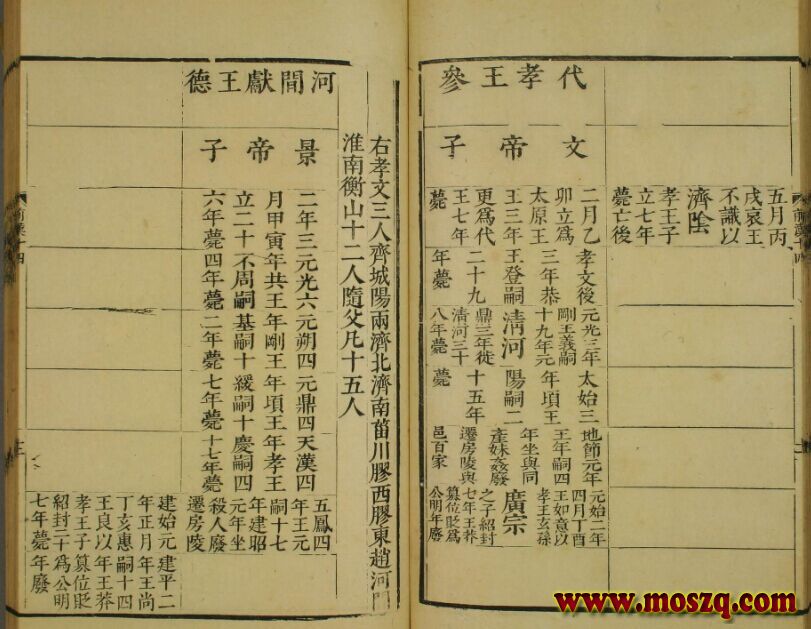 五月丙
戌哀王
不識以
濟陰
孝王子
立七年
薨亡後
代孝王參
文帝子
二月乙
卯立為
太原王
王三年
更為代
王七年
薨
孝文後
三年恭
王登嗣
二十九
年薨
元光三年
剛王義嗣
十九年元
清河
鼎三年徙
清河三十
八年薨
太始三
年頃王
陽嗣二
十五年
薨
地節元年
王年嗣四
年坐與同
產妹姦廢
遷房陵與
邑百家
元始二年
四月丁酉
王如意以
孝王玄孫
廣宗
之子紹封
七年王莽
篡位貶為
公明年廢
右孝文三人齊城陽兩濟北濟南菑川膠西膠東趙河間
淮南衡山十二人隨父凡十五人
河間獻王德
景帝子
二年三
月甲寅
立二十
六年薨
元光六
年共王
不周嗣
四年薨
元朔四
年剛王
基嗣十
二年薨
元鼎四
年頃王
緩嗣十
七年薨
天漢四
年孝王
慶嗣四
十七年薨
五鳳四
年王元
嗣十七
年建昭
元年坐
殺人廢
遷房陵
建始元
年正月
丁亥惠
王良以
孝王子
紹封二十
七年薨
建平二
年王尚
嗣十四
年王莽
篡位貶
為公明
年廢
www.moszq.com